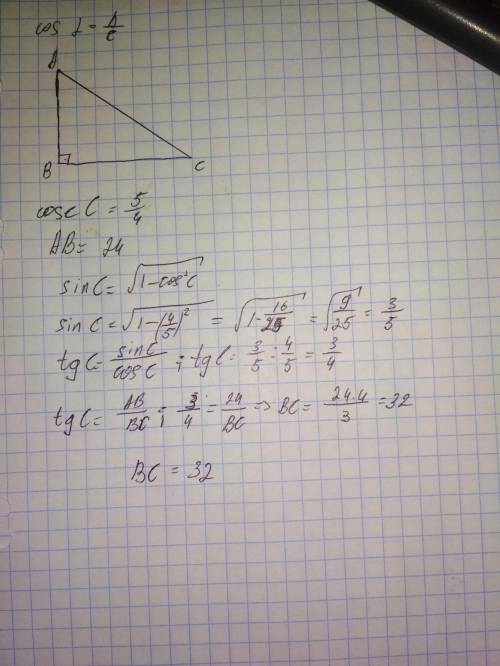 cos L = A/c
A
B
C
cosc C = 5/4
AB = 24
sin C = √(1-cos²C)
sin C = √(1-(4/5)²) = √(1-16/25) = √(9/25) = 3/5
tg C = sin C/cos C ; tg C = 3/5 : 4/5 = 3/4
tg C = AB/BC ; 3/4 = 24/BC => BC = 24·4/3 = 32
BC = 32